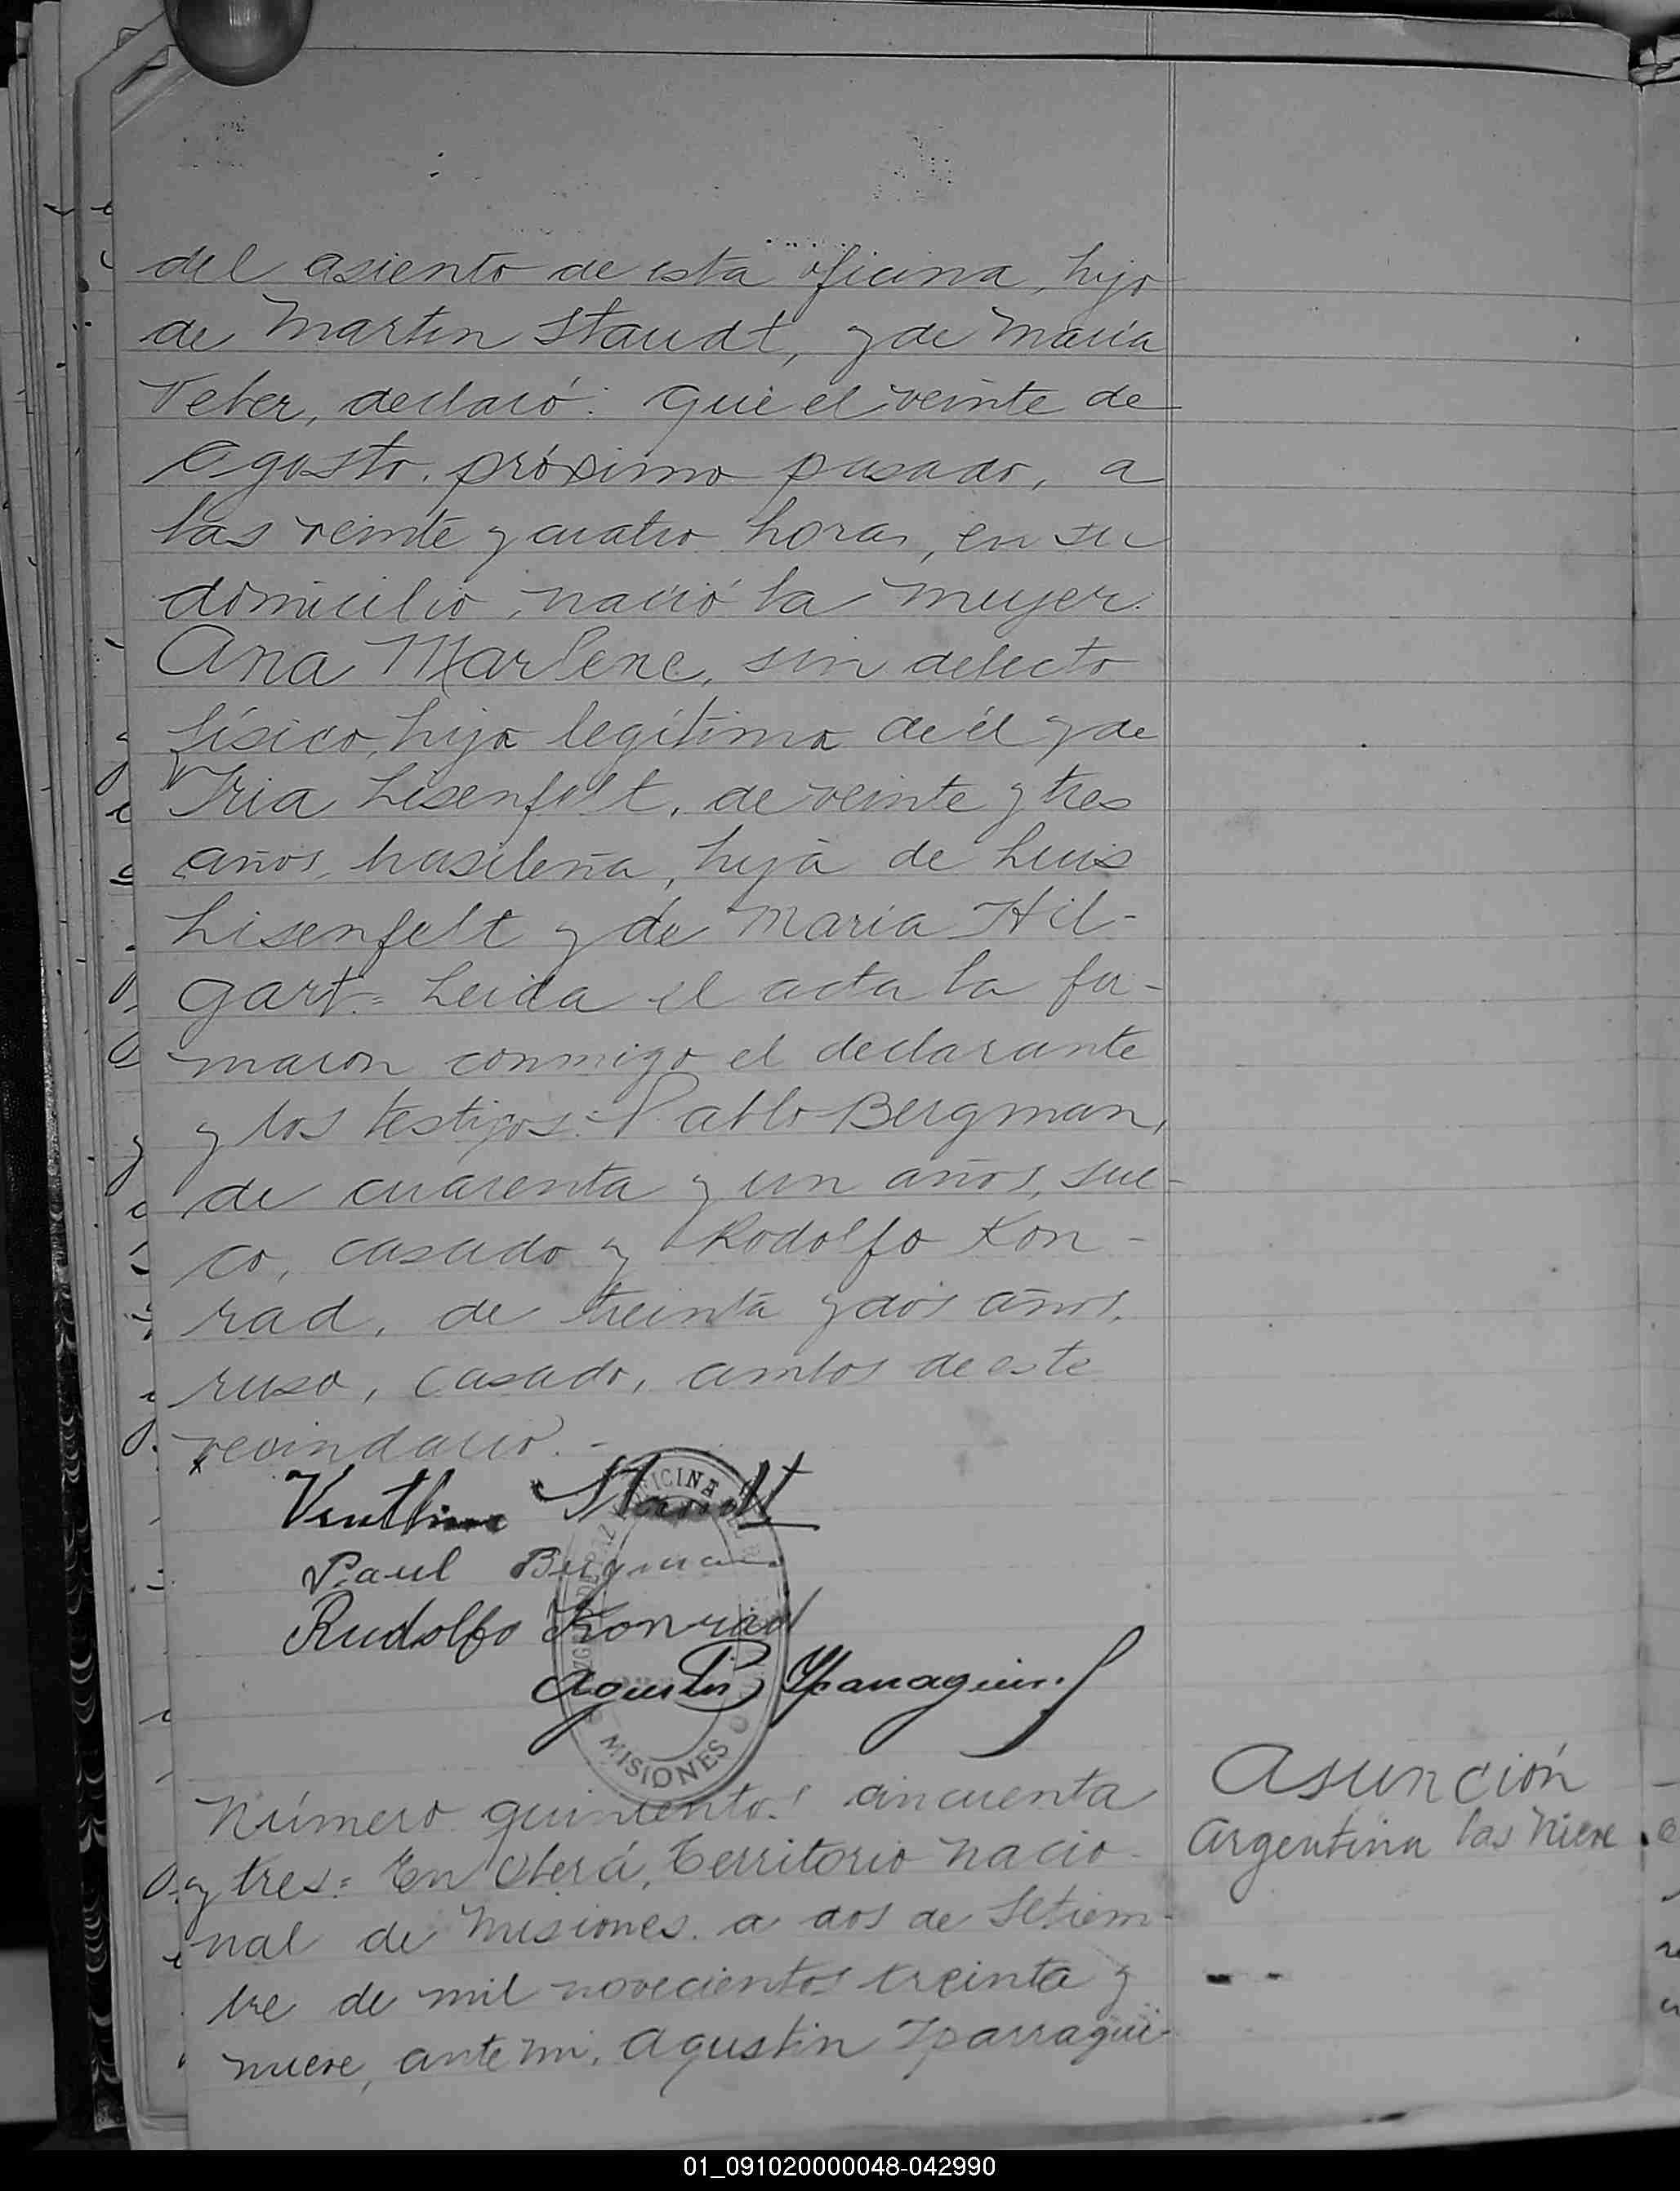 del asiento de esta oficina, hijo
de Martin Staudt, y de Maria
Veber, declaró: Que el veinte de
Agosto próximo pasado, a
las veinte y cuatro horas, en su
domicilio, nació la mujer
Ana Marlene, sin defecto
físico, hija legítima de él y de
Iria Lisenfelt, de veinte y tres
años, brasileña, hija de Luis
Lisenfelt y de Maria Hil-
gart= Leida el acta la fir-
maron conmigo el declarante
y los testigos: Pablo Bergman,
de cuarenta y un años, sue-
co, casado y Rodolfo Kon-
rad, de treinta y dos años,
ruso, casado, ambos de este
vecindario.-
Staudt
Paul Bergman
Rudolfo Konrad
Agustin Yparraguirre
OFICINA
MISIONES
Número quinientos cincuenta
y tres= En Oberá, Territorio Nacio-
nal de Misiones, a dos de Setiem-
bre de mil novecientos treinta y
nueve, ante mi, Agustin Yparragui-
Asunción
Argentina las Nieve